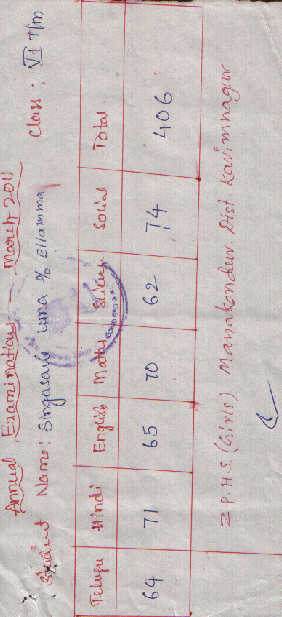 Annual Examinations - March 2011
Student Name: Singasani Uma % Ellamma Class: VI T/m
Telugu Hindi English Maths Science Social Total
64 71 65 70 62 74 406
Z.P.H.S. (Girls) Manakondur Dist. Karimnagar